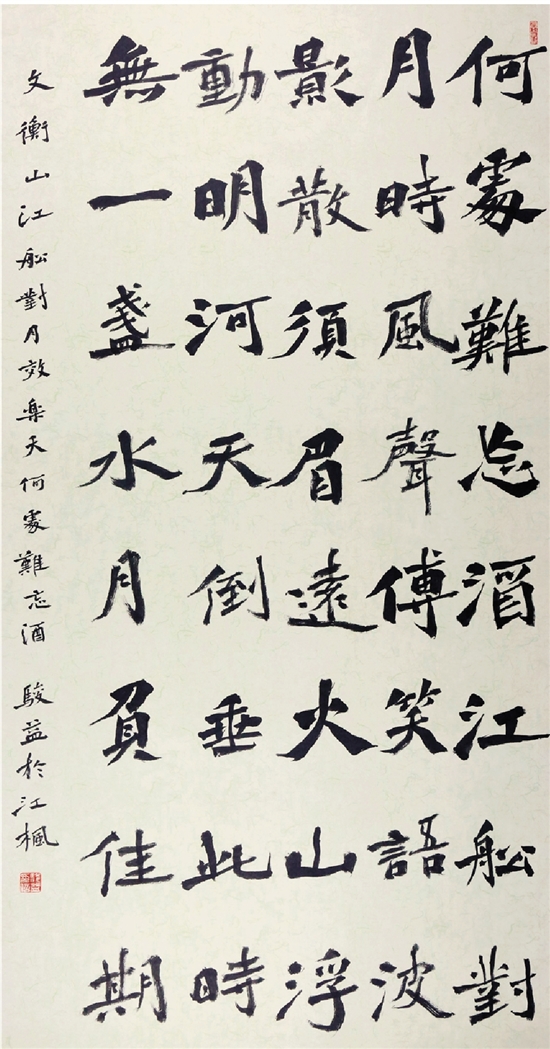 何處難忘酒江船對
月時風聲傳笑語波
影散須眉遠火山浮
動明河天倒垂此時
無一盞水月負佳期
文衡山江船對月效樂天何處難忘酒 駿益於江楓